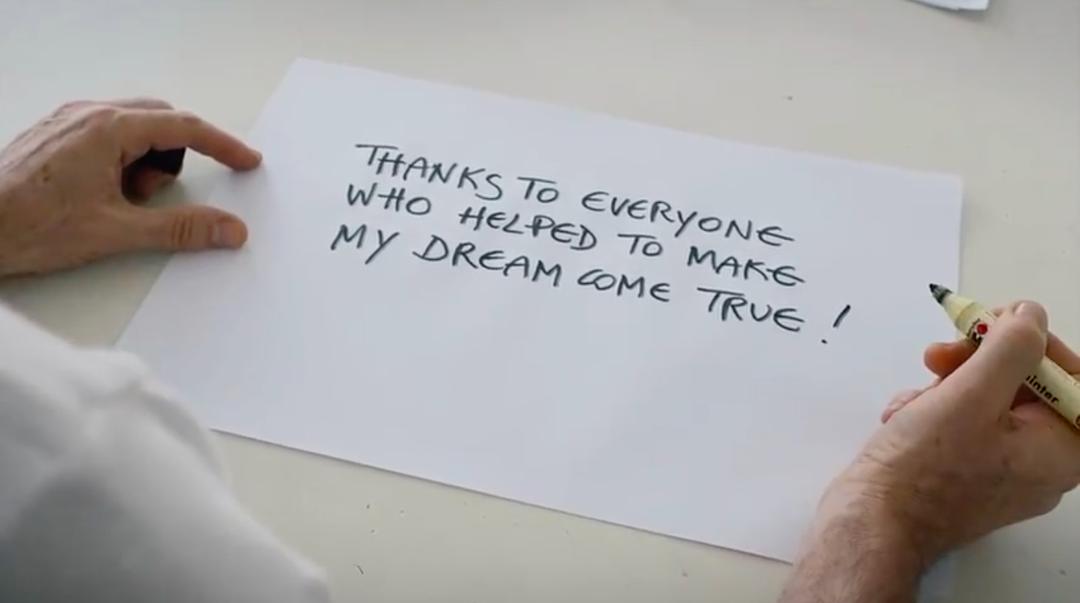 THANKS TO EVERYONE
WHO HELPED TO MAKE
MY DREAM COME TRUE !